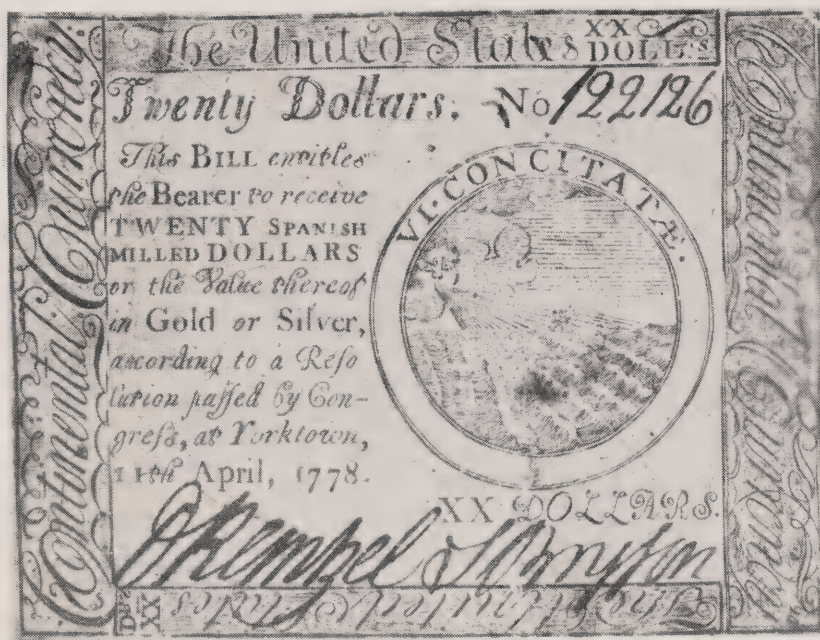 The United States XX DOLLRS
Continental Currency.
Twenty Dollars. No 122126
This BILL entitles
the Bearer to receive
TWENTY SPANISH
MILLED DOLLARS
or the Value thereof
in Gold or Silver,
according to a Reso
lution paſſed by Con-
greſs, at Yorktown,
11th April, 1778.
VI·CONCITATÆ.
XX DOLLARS.
Continental Currency
The United States
XX